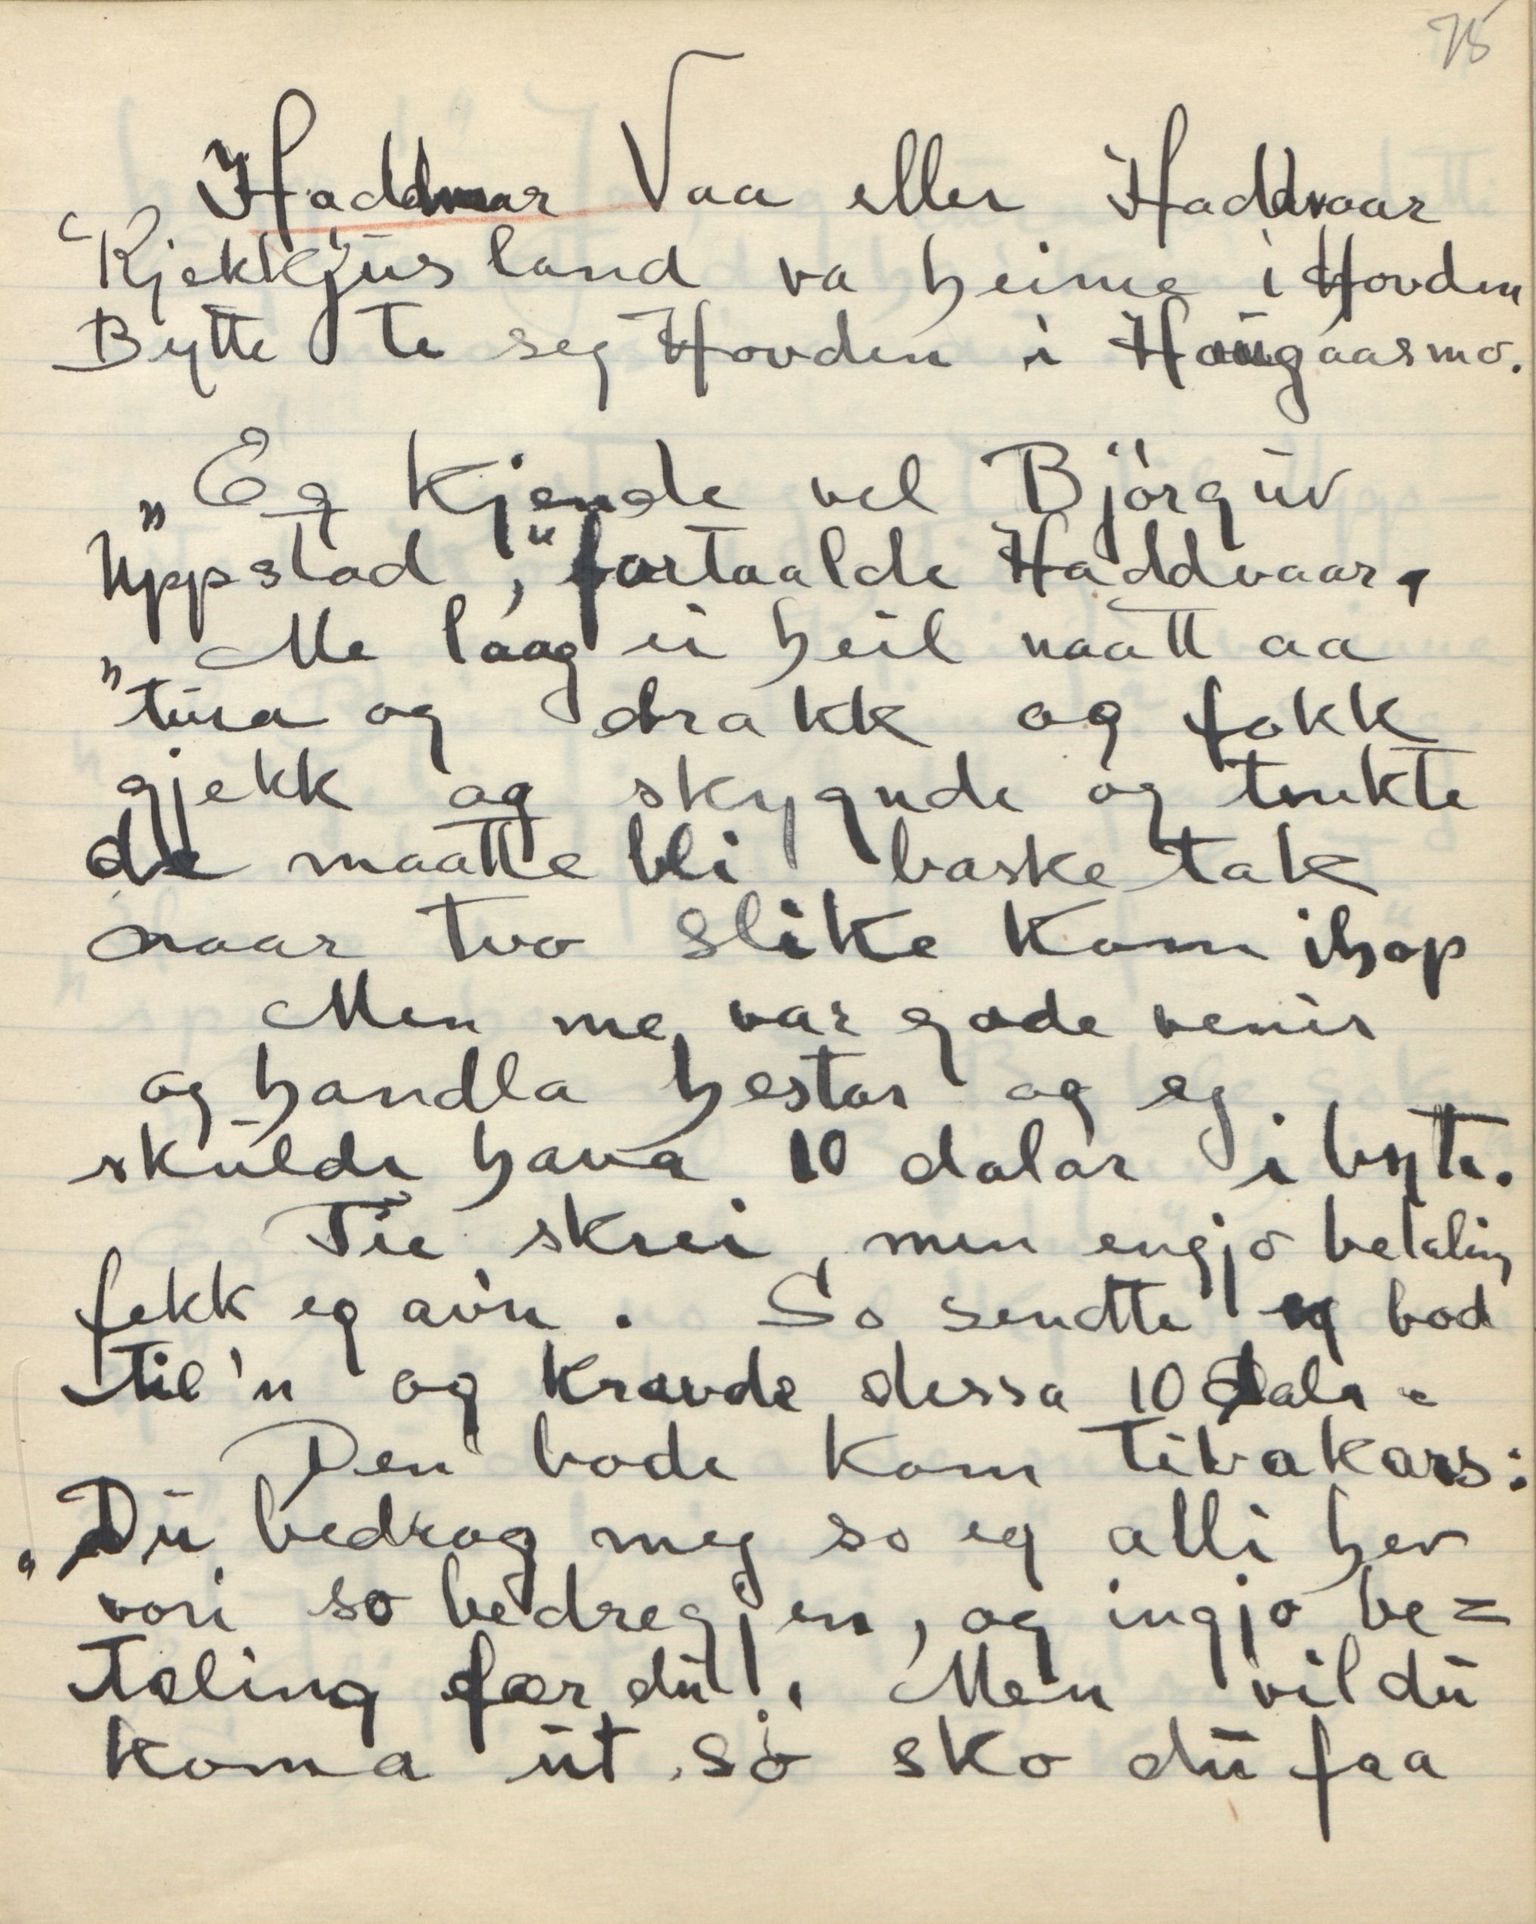 75
Haddvaar Vaa eller Haddvaar
Kjekkjusland va heime i Hovden
Bytte te seg Hovden i Haugaasmo.
„Eg kjende vel Björguv
Uppstad," fortaalde Haddvaar,
„Me laag ei heil naatt aa
tura og drakk og fokk
gjekk og skygnde og trukte
de maatte bli basketak
naar tvo slike kom ihop
Men me var gode venir
og handla hestar og eg
skulde hava 10 dalar i byte.
Tie skrei, men engjo betaling
fekk eg av'n. So sendte eg bod
til'n og kravde dessa 10 dalr.
Den bode kom tibakars:
„Du bedrog meg so eg alli hev
vori so bedregjen, og ingjo be=
taling fær du!. Men vil du
koma ut so sko du faa